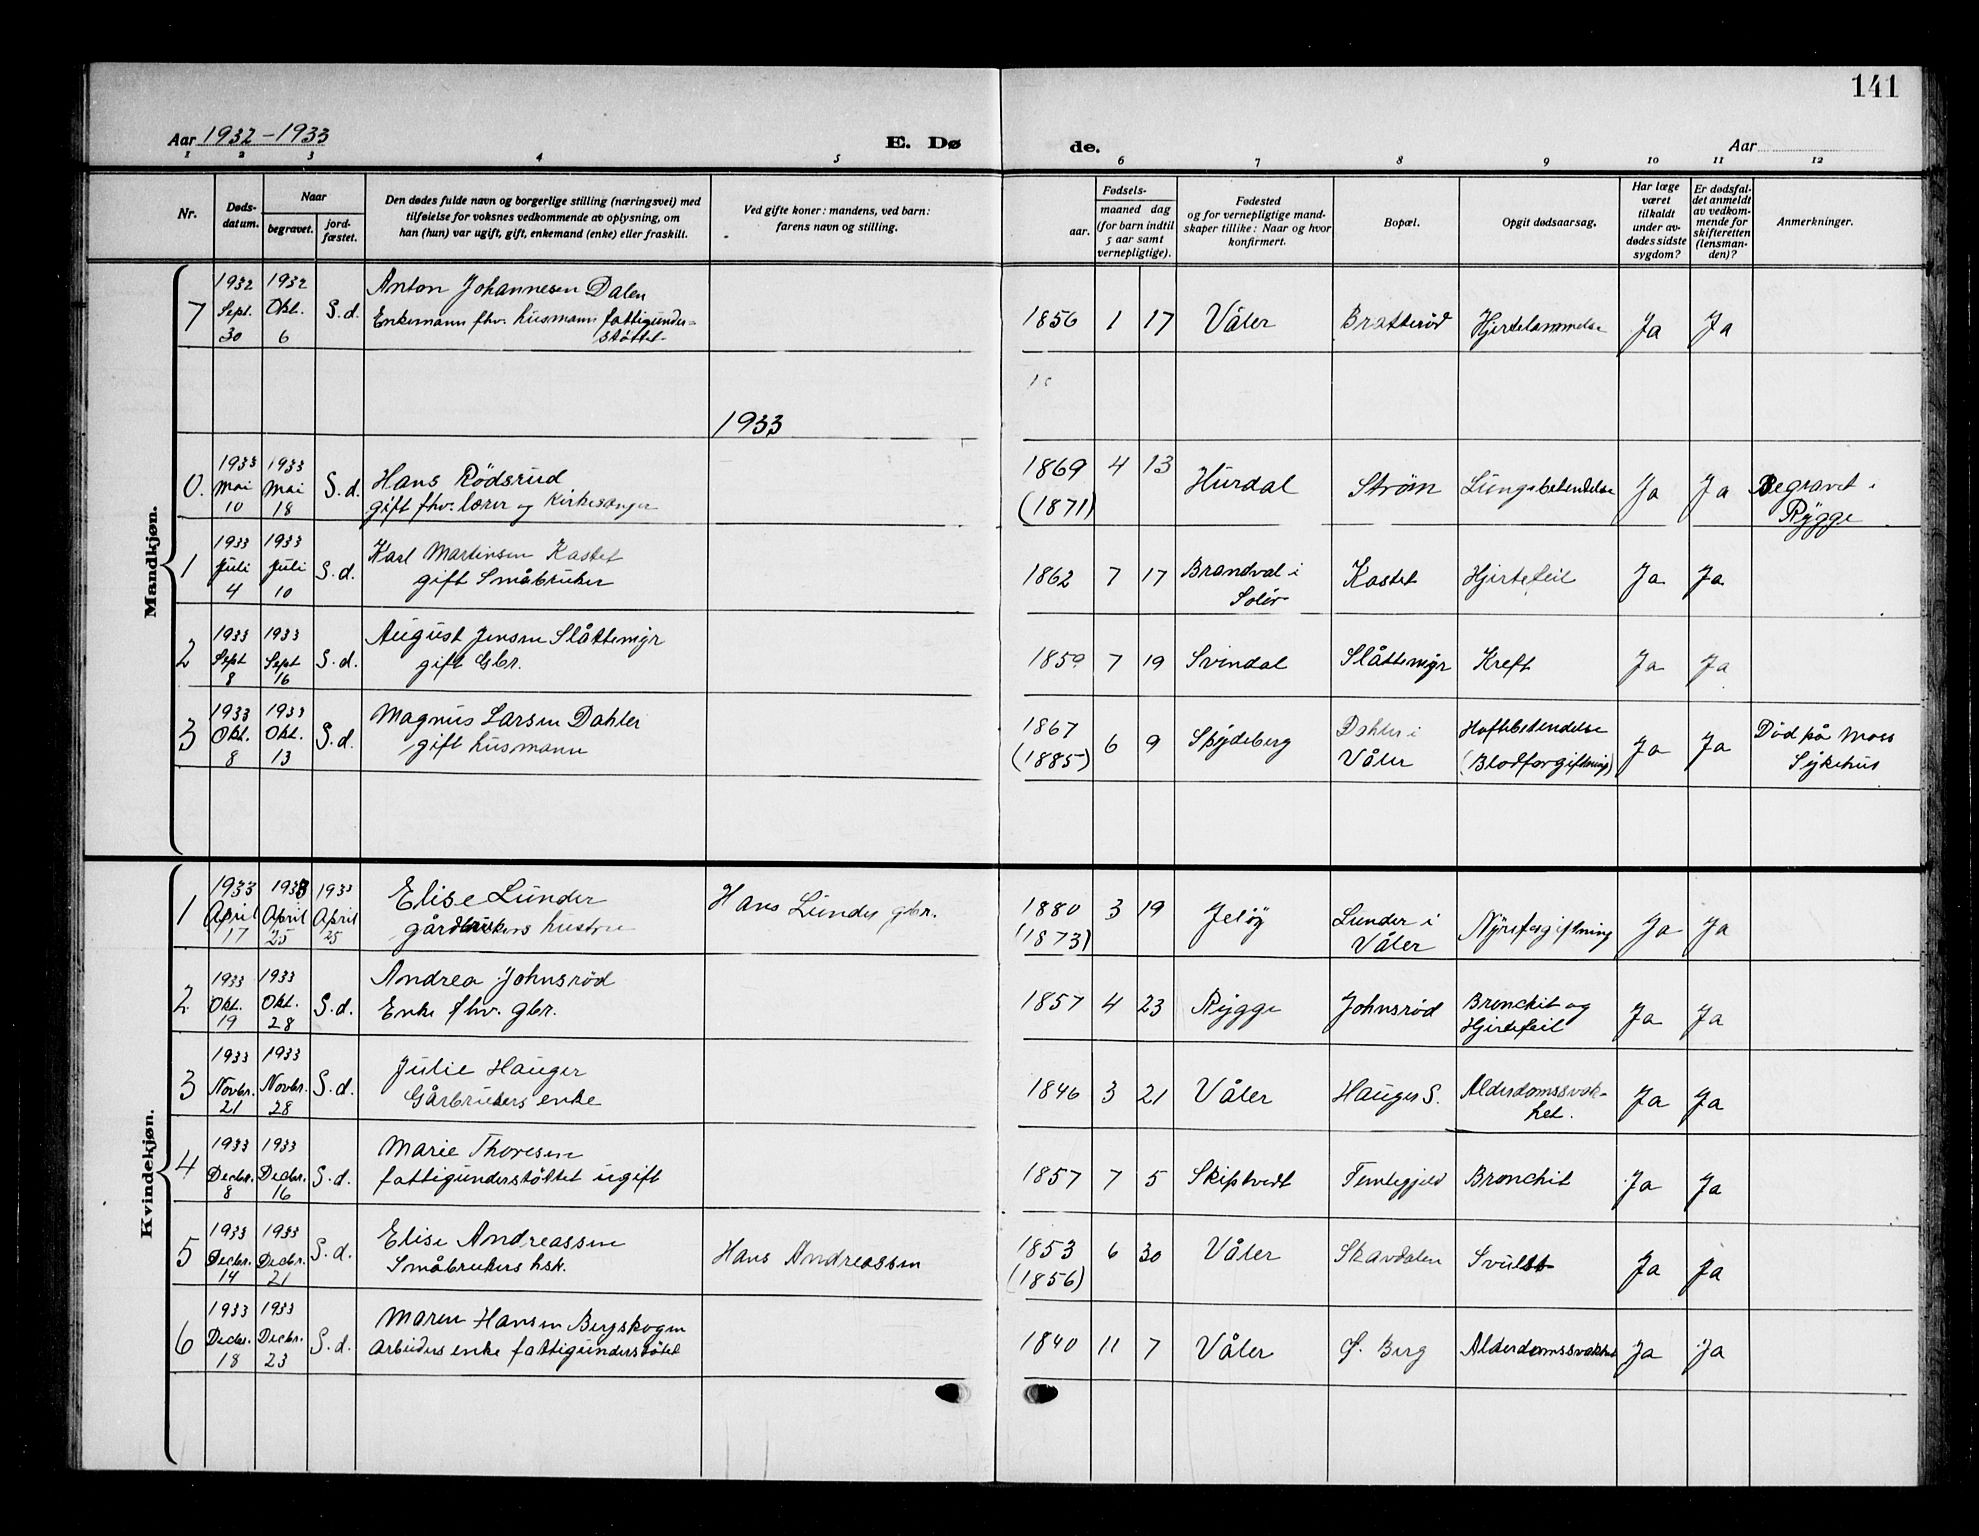 141
Aar 1932-1933
E. Dø
de.
Aar
1 2 3 4 5 6 7 8 9 10 11 12
Nr.
Døds-
datum.
Naar
begravet.
jord-
fæstet.
Den dødes fulde navn og borgerlige stilling (næringsvei) med
tilføielse for voksnes vedkommende av oplysning, om
han (hun) var ugift, gift, enkemand (enke) eller fraskilt.
Ved gifte koner: mandens, ved barn:
farens navn og stilling.
Fødsels-
aar.
maaned dag
(for barn indtil
5 aar samt
vernepligtige).
Fødested
og for vernepligtige mand-
skaper tillike: Naar og hvor
konfirmert.
Bopæl.
Opgit dødsaarsag.
Har læge
været
tilkaldt
under av-
dødes sidste
sygdom?
Er dødsfal-
det anmeldt
av vedkom-
mende for
skifteretten
(lensman-
den)?
Anmerkninger.
Mandkjøn.
7
1932
Sept.
30
1932
Okt.
6
S.d.
Anton Johannesen Dalen
Enkemann fhv. husmann fattigunder-
støttet
1856 1 17 Våler Bratterød Hjertelammelse Ja Ja
1933
0.
1933
Mai
10
1933
Mai
18
S.d.
Hans Rödsrud
gift fhv. lærer og Kirkesanger
1869 4 13
(1871)
Hurdal Strøm Lungebetendelse Ja Ja
Begravet i
Rygge
1
1933
Juli
4
1933
Juli
10
S.d.
Karl Martinsen Kastet
gift Småbruker
1862 7 17
Brandval i
Solør
Kastet Hjertefeil Ja Ja
2
1933
Sept
8
1933
Sept
16
S.d.
August Jensen Slåttemyr
gift Gbr.
1859 7 19 Svindal Slåttemyr Kreft Ja Ja
3
1933
Okt.
8
1933
Okt.
13
S.d.
Magnus Larsen Dahler
gift husmann
1867
(1885)
6 9 Spydeberg
Dahler i
Våler
Hoftebetendelse
(Blodforgiftning)
Ja Ja
Død på Moss
Sykehus
Kvindekjøn.
1
1933
April
17
1933
April
25
1933
April
25
Elise Lunder
gårdbrukers hustru
Hans Lunder gbr.
1880
(1873)
3 19 Jeløy
Lunder i
Våler
Nyreforgiftning Ja Ja
2
1933
Okt.
19
1933
Okt.
28
S.d.
Andrea Johnsrød
Enke fhv. gbr.
1857 4 23 Rygge Johnsrød
Bronchit og
Hjertefeil
Ja Ja
3
1933
Novbr.
21
1933
Novbr.
28
S.d.
Julie Hauger
Gårbrukers enke
1846 3 21 Våler Hauger S.
Alderdomssvak-
het.
Ja Ja
4
1933
Decbr.
8
1933
Decbr.
16
S.d.
Marie Thoresen
fattigunderstöttet ugift
1857 7 5 Skiptvedt Bronchit Ja Ja
5
1933
Decbr.
14
1933
Decbr.
21
S.d.
Elise Andreassen
Småbrukers hsk.
Hans Andreassen
1853
(1856)
6 30 Våler Skavdalen Svulst Ja Ja
6
1933
Decbr.
18
1933
Decbr.
23
S.d.
Maren Hansen Bergskogen
Arbeiders enke fattigunderstøtet
1840 11 7 Våler Ø. Berg Alderdomssvakhet Ja Ja